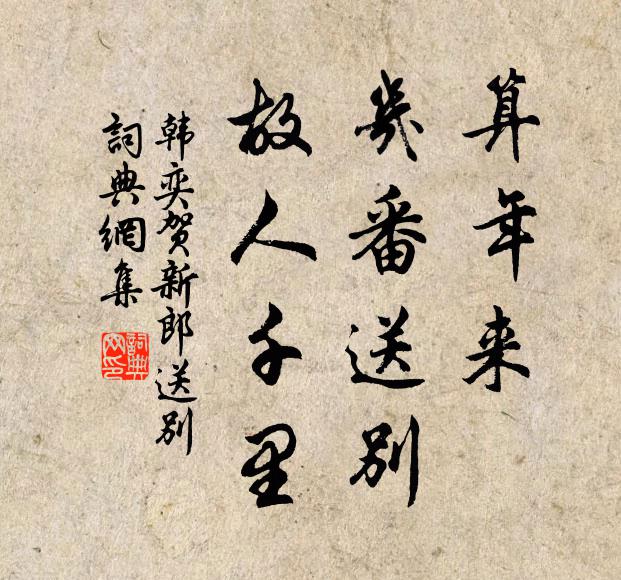 算年来
幾番送别
故人千里
韩奕贺新郎送别
詞典網集
詞典網印